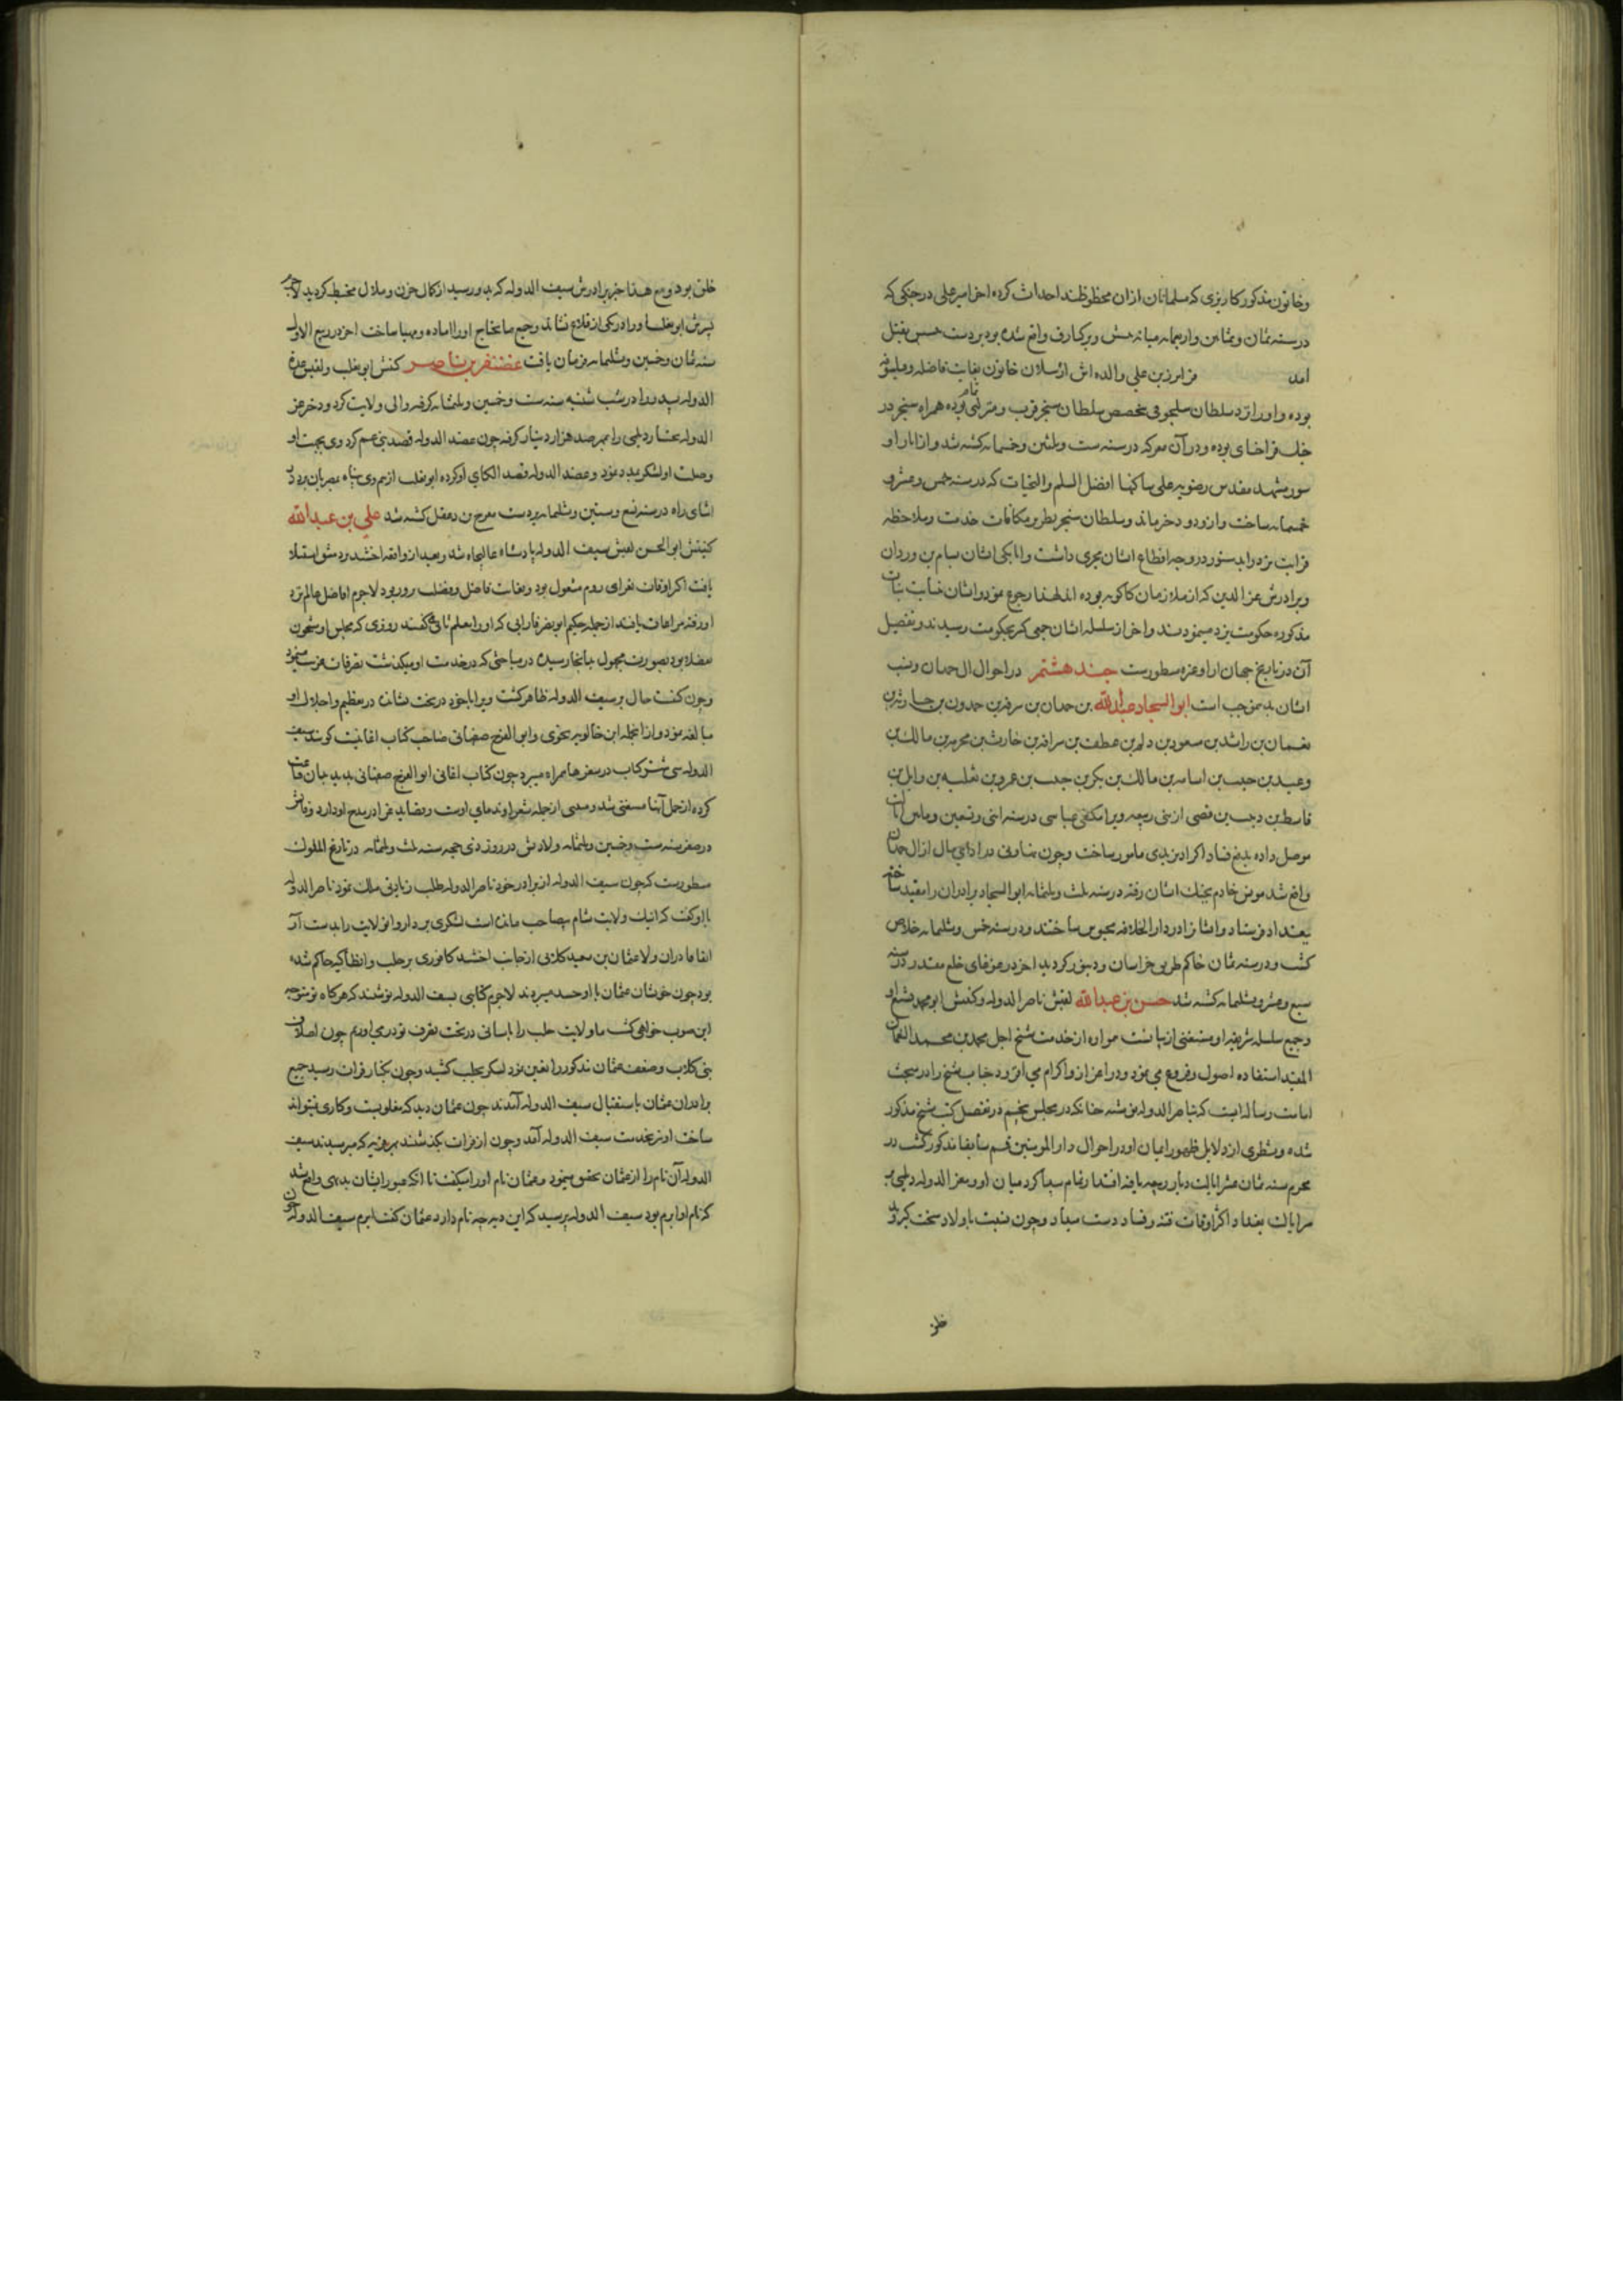 و خاتون مذکور کاریزی که مسلمانان از آن محظوظند احداث کرده اخر امیر علی در جنکی که
در سنه ثمان و ثمانین و اربعمایه میانه تتش و برکیارق واقع شده بود بر دست حسین بقتل
امد فرامرز بن علی والده اش ارسلان خاتون بغایت فاضله و
بوده و او را نزد سلطان سلجوقی بتخصیص سلطان سنجر قرب و منزلتی تمام بوده همراه سنجر در
جنک قراختای بوده و در آن معرکه در سنه ست و ثلثین و خمسمایه کشته شد و از اثار او
سور مشهد مقدس رضویه علی ساکنها افضل السلم و التحیات که در سنه خمس و عشر و
خمسمایه ساخت و از و دو دختر ماند و سلطان سنجر بطریق مکافات خدمت و ملاحظه
قرابت یزد را بدستور در وجه اقطاع ایشان مجری داشت و اتابکی ایشان بسام بن وردان
و برادرش عز الدین که از ملازمان کاکویه بوده اند لهذا رجوع نمود و ایشان بنیابت بنات
مذکوره حکومت یزد مینمودند و اخر از سلسله ایشان جمعی کثیر بحکومت رسیدند و تفصیل
آن در تاریخ جهان ارا و غیره مسطورست جند هشتم در احوال ال حمدان و نسب
ایشان بدین موجب است ابو الهیجا عبد الله بن حمدان بن حمدون بن حارث بن
نعمان بن راشد بن سعود بن دلهم بن عطیف بن حارث بن محرمه بن مالک بن
و عبید بن حبیب بن اسامه بن مالک بن بکر بن حبیب بن عمرو بن تغلب بن وایل بن
قاسط بن از بنی ربیعه ویرا مکتفی عباسی در سنه اثنی و تسعین و ماتین ایالت
موصل داده بدفع فساد اکراد یزیدی مامور ساخت و چون در ادای مال از ال حمدان
واقع شد مونس خادم بجنک ایشان رفته در سنه ثلث و ثلثمایه ابو الهیجا و برادران را مقید ساخته
ببغداد فرستاد و ایشانرا در دار الخلافه محبوس ساختند و در سنه خمس و ثلثمایه خلاص
کشت و در سنه ثمان حاکم طریق خراسان و دینور کردید اخر در غوغای خلع مقتدر در سنه
سبع و عشر و ثلثمایه کشته شد حسن بن عبد الله لقبش ناصر الدوله و کنیتش ابو محمد تشیع او
و جمیع سلسله شریفه او مستغنی از بیانست همواره از خدمت شیخ اجل محمد بن محمد النعمان
المفید استفاده اصول و فروع می نمود و در اعزاز و اکرام می افزود جناب شیخ را در مبحث
امامت رساله ایست که بنام ناصر الدوله نوشته چنانکه در مجلس پنجم در تفصیل کتب شیخ مذکور
شده و شطری از دلایل ظهور ایمان او در احوال دار المومنین قم سابقا مذکور کشت در
محرم سنه ثمان عشر ایالت دیار ربیعه یافته اقتدار تمام پیدا کرد میان او و معز الدوله دیلمی بر
سر ایالت بغداد اکثر اوقات فتنه و فساد دست میداد و چون نسبت باولاد سخت کیر و بد
خلق بود و مع هذا خبر برادرش سیف الدوله که بدو رسید از کمال حزن و ملال مخبط کردید لاجرم
پسرش ابو تغلب او را در یکی از قلاع نشاند و جمیع ما یحتاج او را اماده و مهیا ساخت اخر در ربیع الاول
سنه ثمان و خمسین و ثلثمایه فرمان یافت غضنفر بن ناصر کنیتش ابو تغلب و لقبش عدة
الدوله پدر را در شب شنبه سنه ست و خمسین و ثلثمایه کرفته والی ولایت کرد و دختر عز
الدوله بختیار دیلمی را بمهر صد هزار دینار کرفته چون عضد الدوله قصد بنی عم کرد وی بجهت او
وصلت او لشکر بمدد نمود و عضد الدوله قصد الکای او کرده ابو تغلب از بیم وی پناه بمصریان برد در
اثنای راه در سنه تسع و ستین و ثلثمایه بر دست مفرج بن دغفل کشته شد علی بن عبد الله
کنیتش ابو الحسن لقبش سیف الدوله پادشاه عالیجاه شد و بعد از واقعه اخشید بر دمشق استیلا
یافت اکثر اوقات بغزای روم مشغول بود و بغایت فاضل و فضلت پرور بود لاجرم افاضل عالم نزد
او رفته مراعات یافتند از جمله حکیم ابو نصر فارابی که او را معلم ثانی گفتند روزی که مجلس او مشحون
بفضلا بود بصورت مجهول بدانجا رسیده در مباحثی که در خدمت او میکذشت تصرفات غریب مینمود
و چون کیفیت حال بر سیف الدوله ظاهر کشت ویرا با خود در تخت نشاند در تعظیم و اجلال او
مبالغه نمود و از انجمله ابن خالویه نحوی و ابو الفرج صفهانی صاحب کتاب اغانیست کویند سیف
الدوله سی شتر کتاب در سفرها همراه میبرد چون کتاب اغانی ابو الفرج صفهانی بدید بدان قناعت
کرده از حمل آنها مستغنی شد و متنبی از جمله شعرا و ندمای اوست و قصاید غرا در مدح او دارد وفاتش
در صفر سنه ست و خمسین و ثلثمایه ولادتش در روز ذی حجه سنه ثلث و ثلثمایه در تاریخ الملوک
مسطورست که چون سیف الدوله از برادر خود ناصر الدوله طلب زیادتی ملک نمود ناصر الدوله
با او کفت که اینک ولایت شام بی صاحب مانده است لشکری بردار و ان ولایت را بدست آر
اتفاقا در ان ولا عثمان بن سعید کلابی از جانب اخشید کافوری بر حلب و انطاکیه حاکم شده
بود چون خویشان عثمان با او حسد میبردند لاجرم کتابتی بسیف الدوله نوشتند که هرکاه تو متوجه
این صوب خواهی کشت ما ولایت حلب را باسانی در تحت تصرف تو در می اوریم چون اصلان
بنی کلاب و ضعف عثمان مذکور را یقین نمود لشکر بحلب کشید و چون بکنار فرات رسید جمیع
برادران عثمان باستقبال سیف الدوله آمدند چون عثمان دید که مغلوبست و کاری نمیتواند
ساخت او نیز بخدمت سیف الدوله آمد و چون از فرات بکذشتند بهر قریه که میرسیدند سیف
الدوله آن نام را از عثمان تحقیق مینمود و عثمان نام او را میکفت تا انکه عبور ایشان بدیهی واقع شد
که نام او ابرم بود سیف الدوله پرسید که این دیه چه نام دارد عثمان کفت ابرم سیف الدوله چون